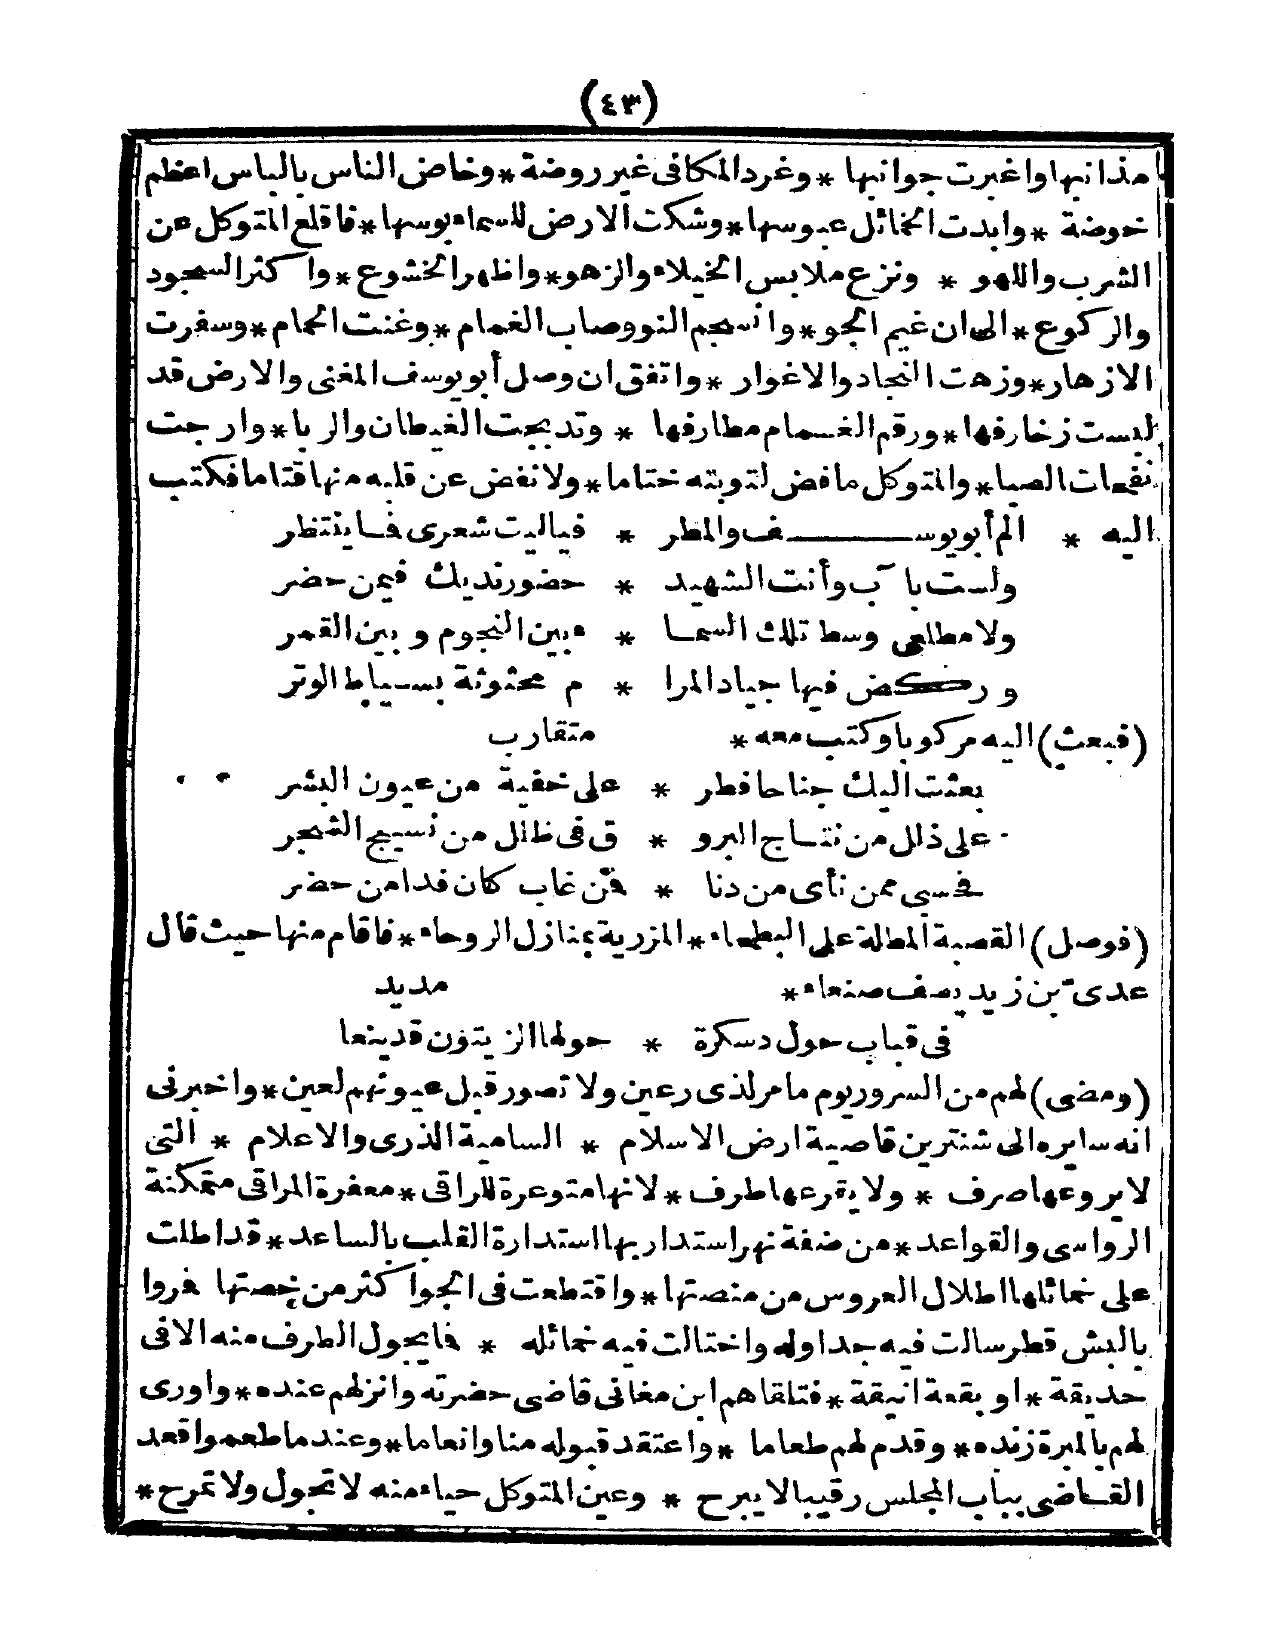 (٤٣)
مذانبها واغبرت جوانبها * وغرد المكافى غير روضة * وخاض الناس بالباس اعظم
خوضة * وابدت الخمائل عبوسها * وشكت الارض للسماء بوسها * فاقلع المتوكل عن
الشرب واللهو * ونزع ملابس الخيلاء والزهو * واظهر الخشوع * واكثر السجود
والركوع * الى ان غيم الجو * وانسجم النو وصاب الغمام * وغنت الحمام * وسفرت
الازهار * وزهت النجاد والاغوار * واتفق ان وصل أبو يوسف المغنى والارض قد
لبست زخارفها * ورقم الغمام مطارفها * وتدبجت الغيطان والربا * وارجت
نفحات الصبا * والمتوكل ما فض لتوبته ختاما * ولا نفض عن قلبه منها قتاما فكتب
اليه * الم أبو يوسف والمطر * فياليت شعرى فما ينتظر
ولست بآب وأنت الشهيد * حضور نديك فيمن حضر
ولا مطلعى وسط تلك السما * ء بين النجوم وبين القمر
وركضى فيها جياد المدا * م محثوثة بسياط الوتر
(فبعث) اليه مركوبا وكتب معه * متقارب
بعثت اليك جناحا فطر * على خفية من عيون البشر
على ذلل من نتاج البرو * ق فى ظلل من نسيج الشجر
فحسبى ممن نأى من دنا * فمن غاب كان فدا من حضر
(فوصل) القصبة المطلة على البطحاء * المزرية بمنازل الروحاء * فاقام منها حيث قال
عدى بن زيد يصف صنعاء * مديد
فى قباب حول دسكرة * حولها الزيتون قد ينعا
(ومضى) لهم من السرور يوم ما مر لذى رعين ولا تصور قبل عيونهم لعين * واخبرنى
انه سايره الى شنترين قاصية ارض الاسلام * السامية الذرى والاعلام * التى
لا يروعها صرف * ولا يقرعها طرف * لانها متوعرة المراقى * معفرة المراقى متمكنة
الرواسى والقواعد * من ضفة نهر استدار بها استدارة القلب بالساعد * قد اطلت
على خمائلها اطلال العروس من منصتها * واقتطعت فى الجو اكثر من حصتها فمروا
بالبش قطر سالت فيه جداوله واختالت فيه خمائله * فما يجول الطرف منه الا فى
حديقة * او بقعة انيقة * فتلقاهم ابن مغانى قاضى حضرته وانزلهم عنده * واورى
لهم بالمبرة زنده * وقدم لهم طعاما * واعتقد قبوله منا وانعاما * وعند ما طعموا قعد
القاضى بباب المجلس رقيبا لا يبرح * وعين المتوكل حياء منه لا تجول ولا تمرح *